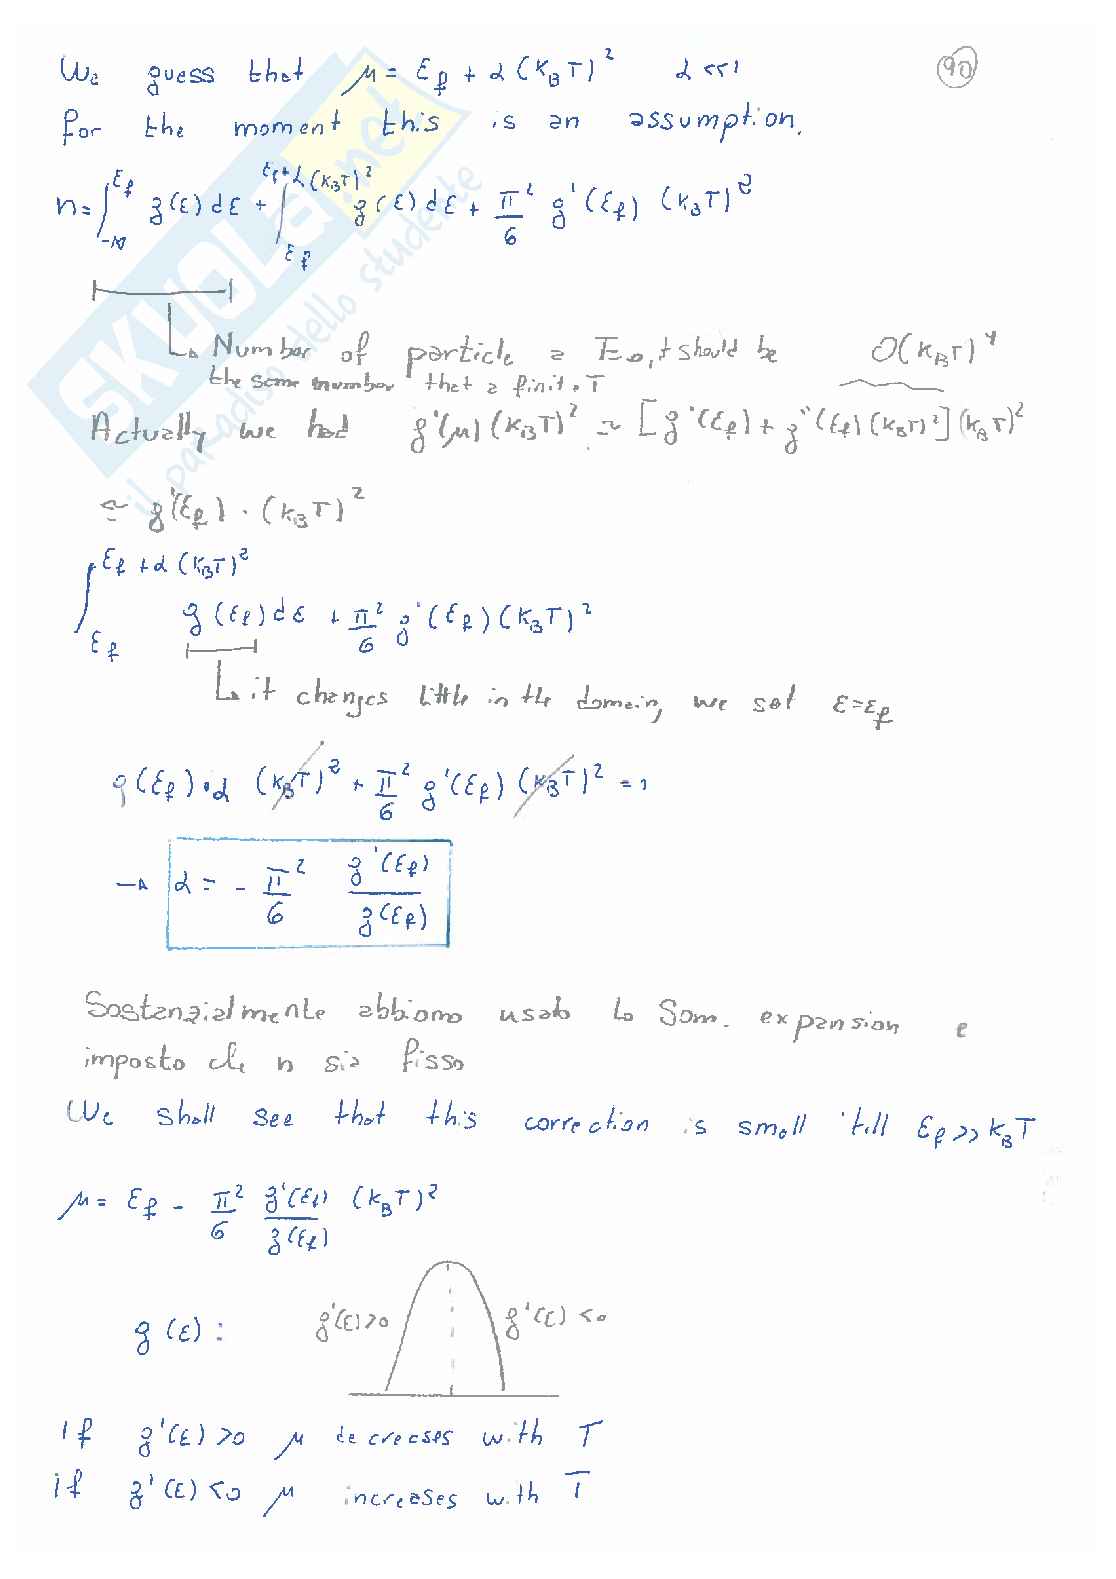 We guess that μ = εf + α (KBT)² α <<1 90
for the moment this is an assumption.
n = ∫_{-∞}^{εf} g(ε)dε + ∫_{εf}^{εf+α(KBT)²} g(ε)dε + π²/6 g'(εf) (KBT)²
Number of particle a T=0, it should be O(KBT)⁴
the same number that a finite T
Actually we had g'(μ)(KBT)² ≃ [g'(εf) + g''(εf)(KBT)²](KBT)²
≃ g'(εf) · (KBT)²
∫_{εf}^{εf+α(KBT)²} g(εf)dε + π²/6 g'(εf)(KBT)²
it changes little in the domain, we set ε=εf
g(εf)·α (KBT)² + π²/6 g'(εf)(KBT)² = 1
→ α = - π²/6 g'(εf)/g(εf)
Sostanzialmente abbiamo usato lo Som. expansion e
imposto che n sia fisso
We shall see that this correction is small 'till εf >> KBT
μ = εf - π²/6 g'(εf)/g(εf) (KBT)²
g(ε): g'(ε)>0 g'(ε)<0
if g'(ε)>0 μ decreases with T
if g'(ε)<0 μ increases with T
SKUOLA.net
il paradiso dello studente